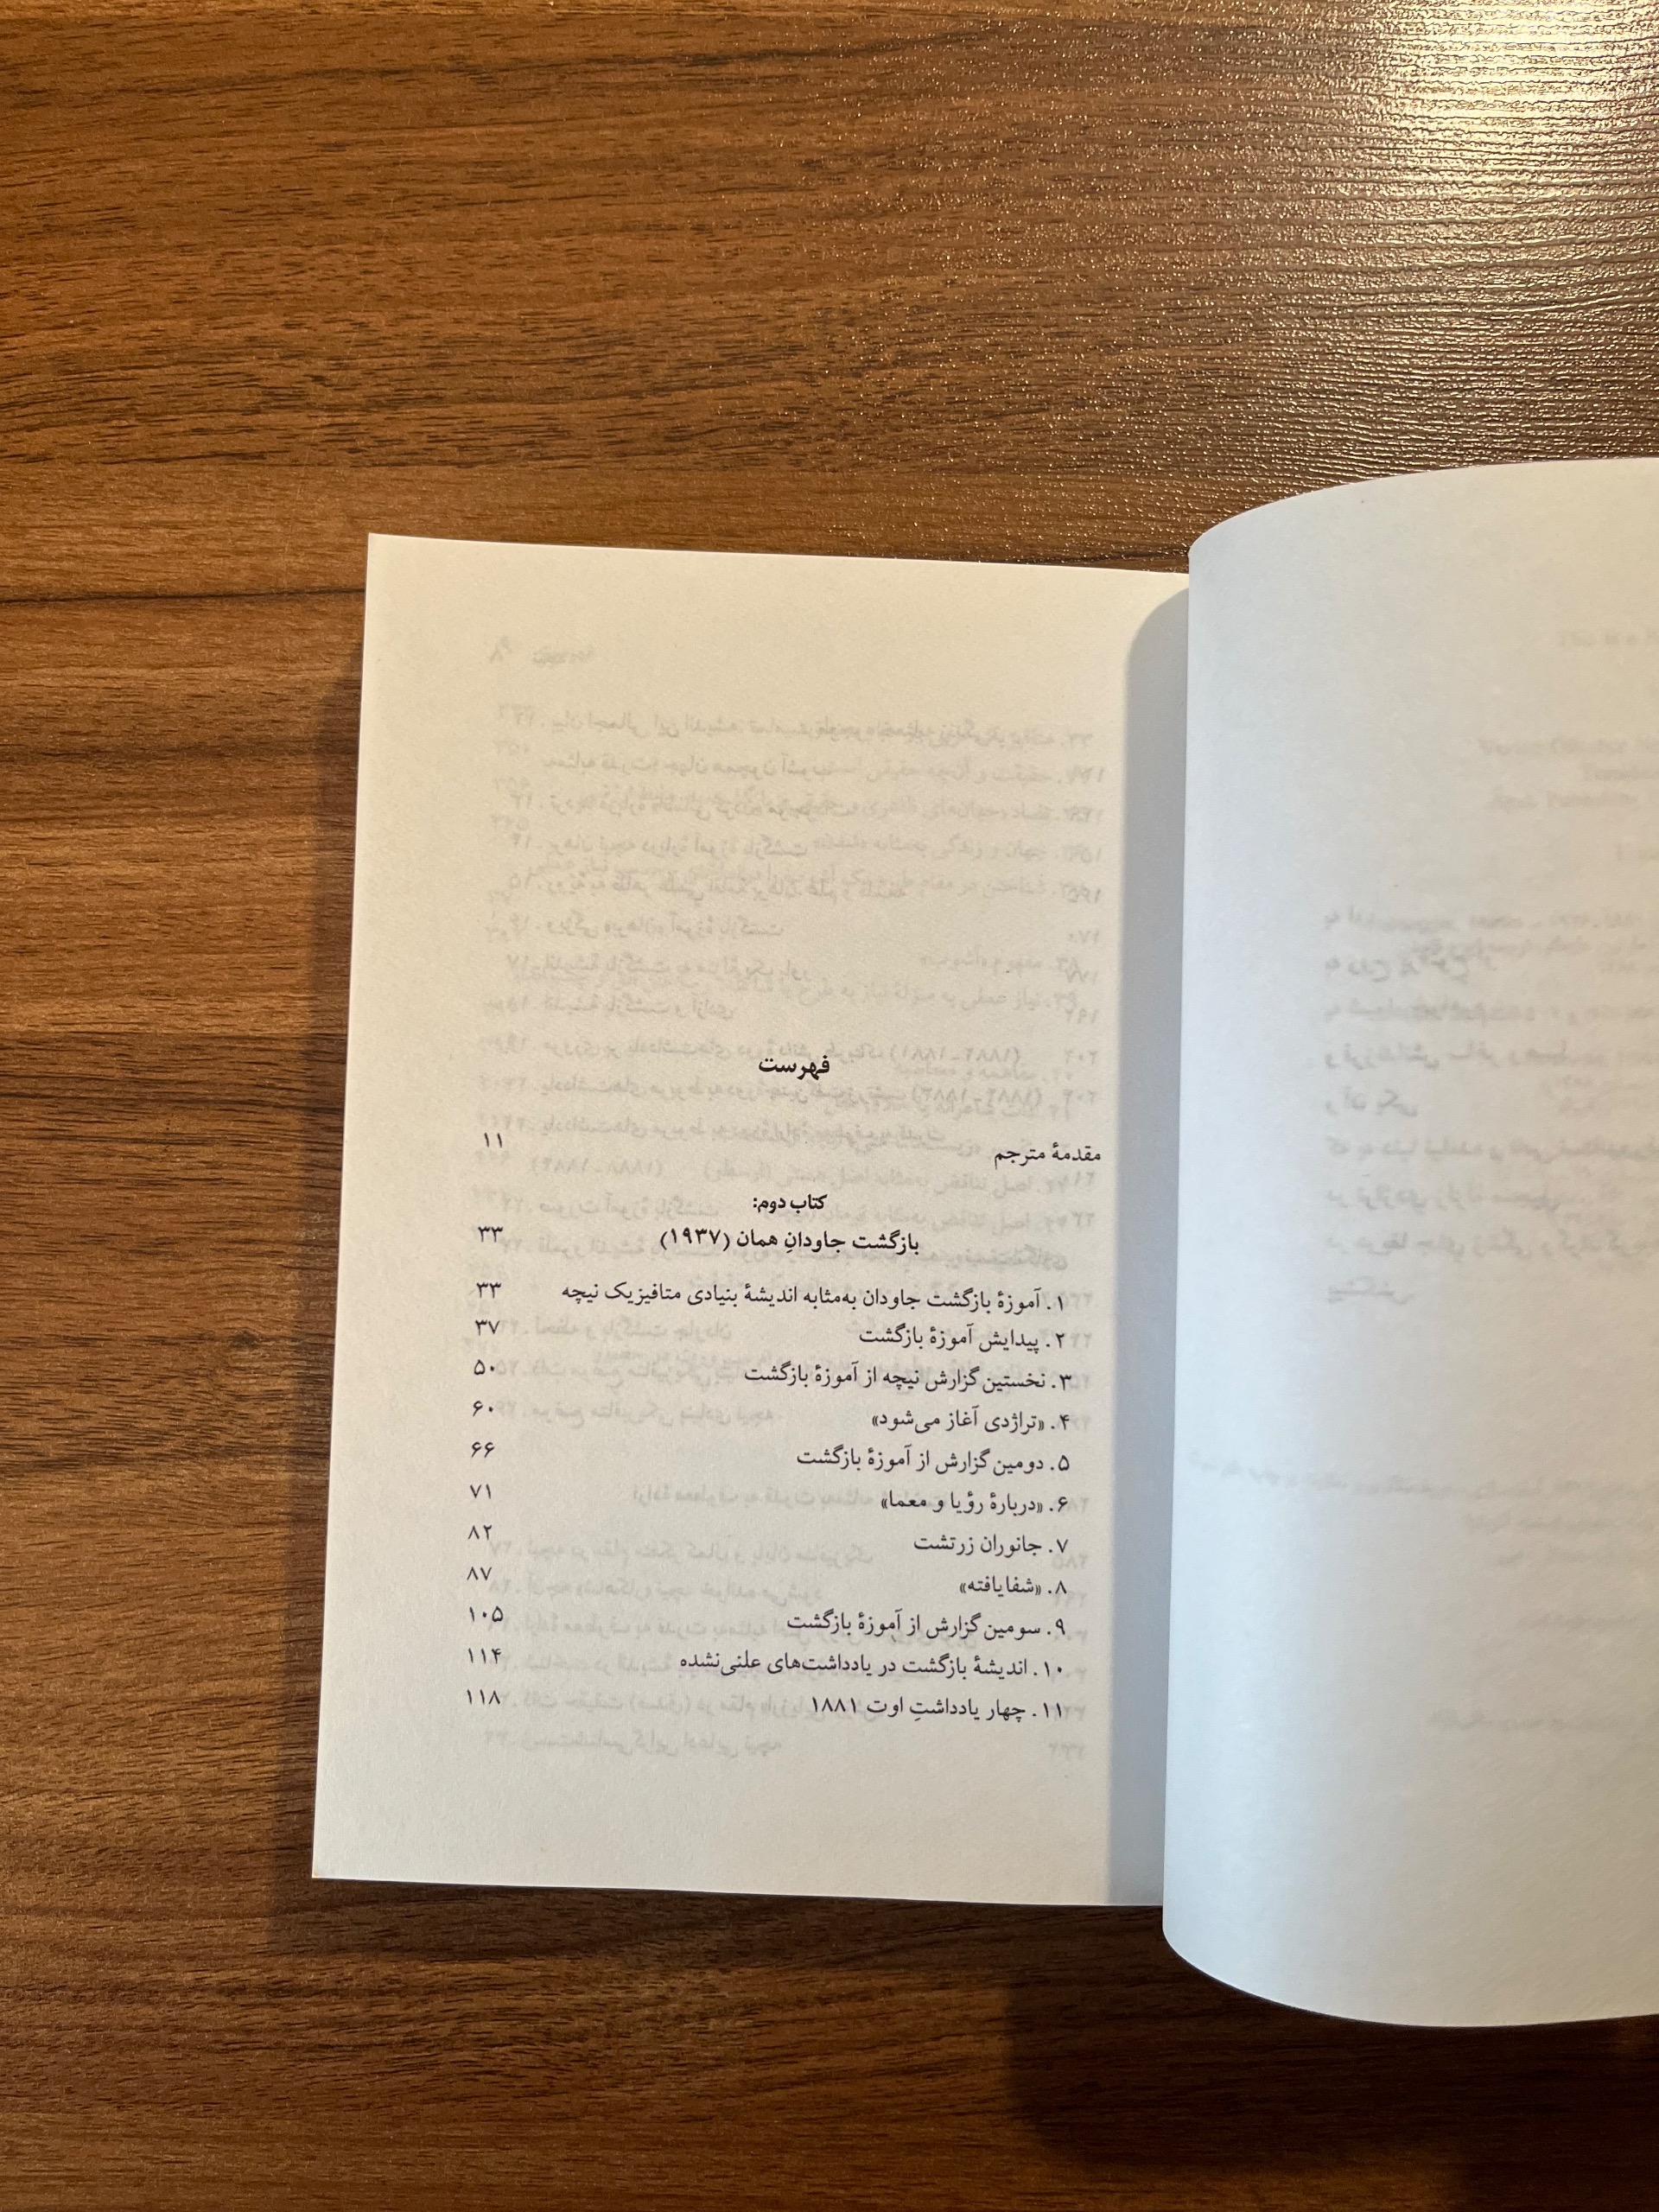 فهرست
مقدمهٔ مترجم ۱۱
کتاب دوم:
بازگشت جاودانِ همان (۱۹۳۷) ۳۳
۱. آموزهٔ بازگشت جاودان به‌مثابه اندیشهٔ بنیادی متافیزیک نیچه ۳۳
۲. پیدایش آموزهٔ بازگشت ۳۷
۳. نخستین گزارش نیچه از آموزهٔ بازگشت ۵۰
۴. «تراژدی آغاز می‌شود» ۶۰
۵. دومین گزارش از آموزهٔ بازگشت ۶۶
۶. «دربارهٔ رؤیا و معما» ۷۱
۷. جانوران زرتشت ۸۲
۸. «شفایافته» ۸۷
۹. سومین گزارش از آموزهٔ بازگشت ۱۰۵
۱۰. اندیشهٔ بازگشت در یادداشت‌های علنی‌نشده ۱۱۴
۱۱. چهار یادداشتِ اوت ۱۸۸۱ ۱۱۸